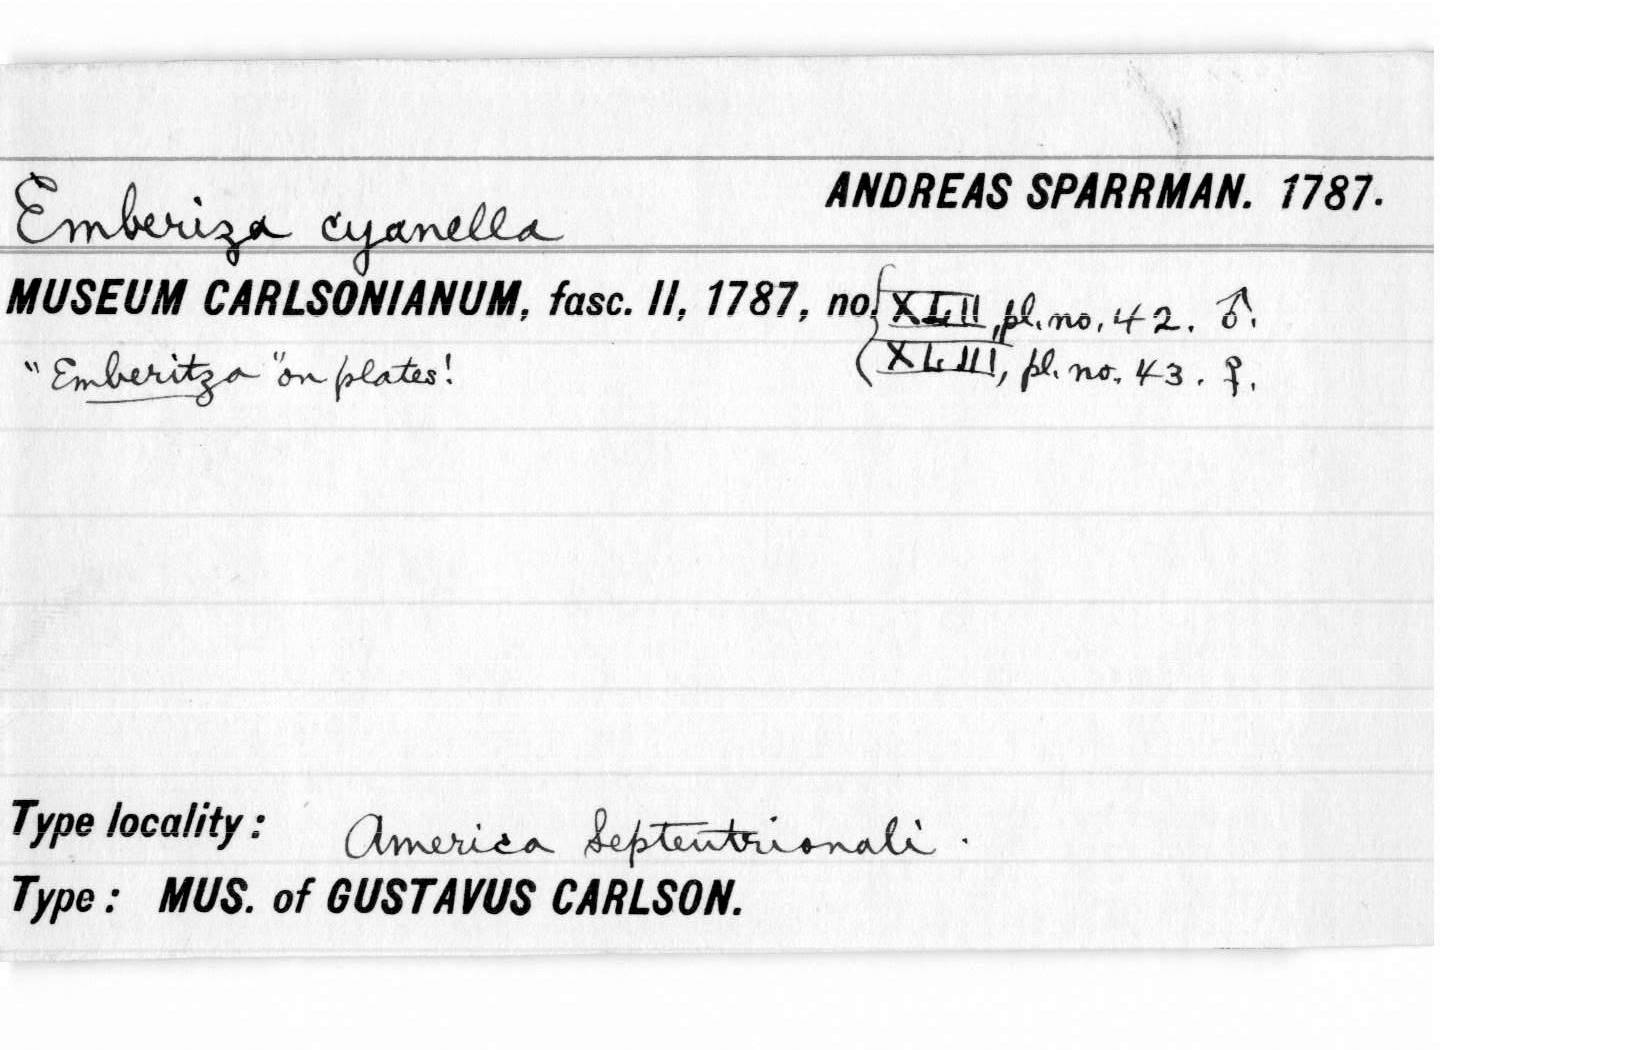 Emberiza cyanella
ANDREAS SPARRMAN. 1787.
MUSEUM CARLSONIANUM, fasc. II, 1787, no. XLII, pl. no. 42. ♂.
XLIII, pl. no. 43. ♀.
"Emberitza" on plates!
Type locality: America Septentrionali.
Type: MUS. of GUSTAVUS CARLSON.